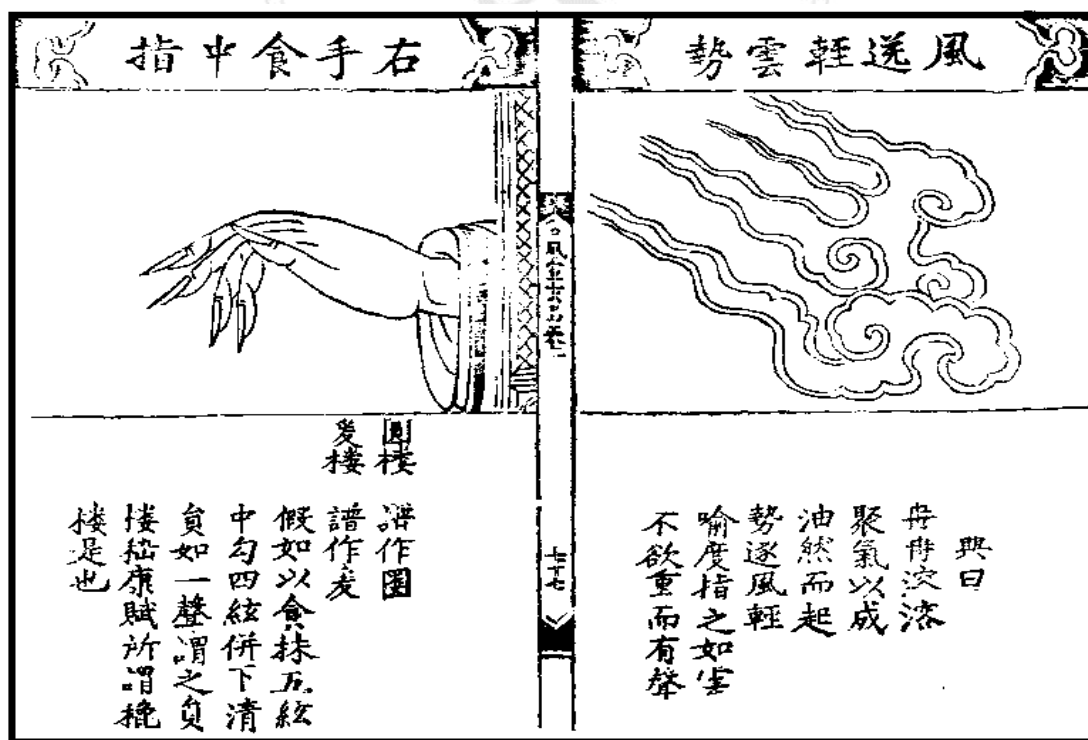 風送輕雲勢
興曰
冉冉
聚氣以成
油然而起
勢逐風輕
喻度指之如雲
不欲重而有聲
風宣玄品卷二
七十七
右手食中指
圓摟 譜作圈
摟 譜作
假如以食抹五絃
中勾四絃併下清
貟如一聲謂之貟
摟嵇康賦所謂
摟是也